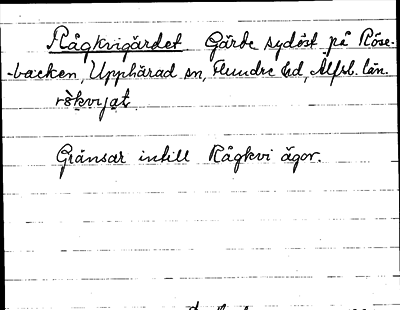 Rågkvigärdet Gärde sydöst på Röse-
-backen, Upphärad sn, Flundre hd, Älfsb. län.
rồkvɩjat
Gränsar intill Rågkvi ägor.